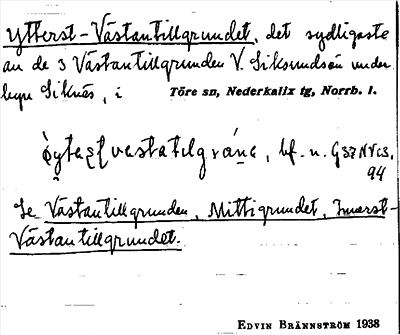 Ytterst-Västantillgrundet, det sydligaste
av de 3 Västantillgrunden V. Siksundsön under
byn Siknäs, i Töre sn, Nederkalix tg, Norrb. l.
bf. n. G37NVc3,
94
Se Västantillgrunden, Mittigrundet, Innerst-
Västantillgrundet.
EDVIN BRÄNNSTRÖM 1938